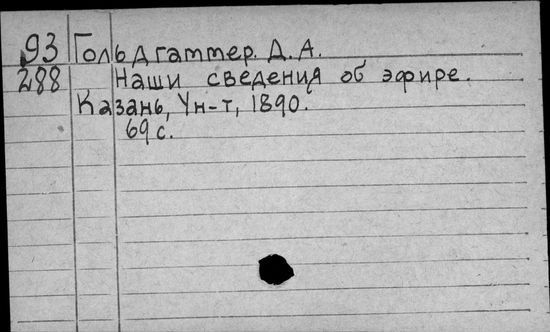 93 Гольдгаммер. Д. А.
288 Наши сведения об эфире.
Казань, Ун-т, 1890.
69 с.